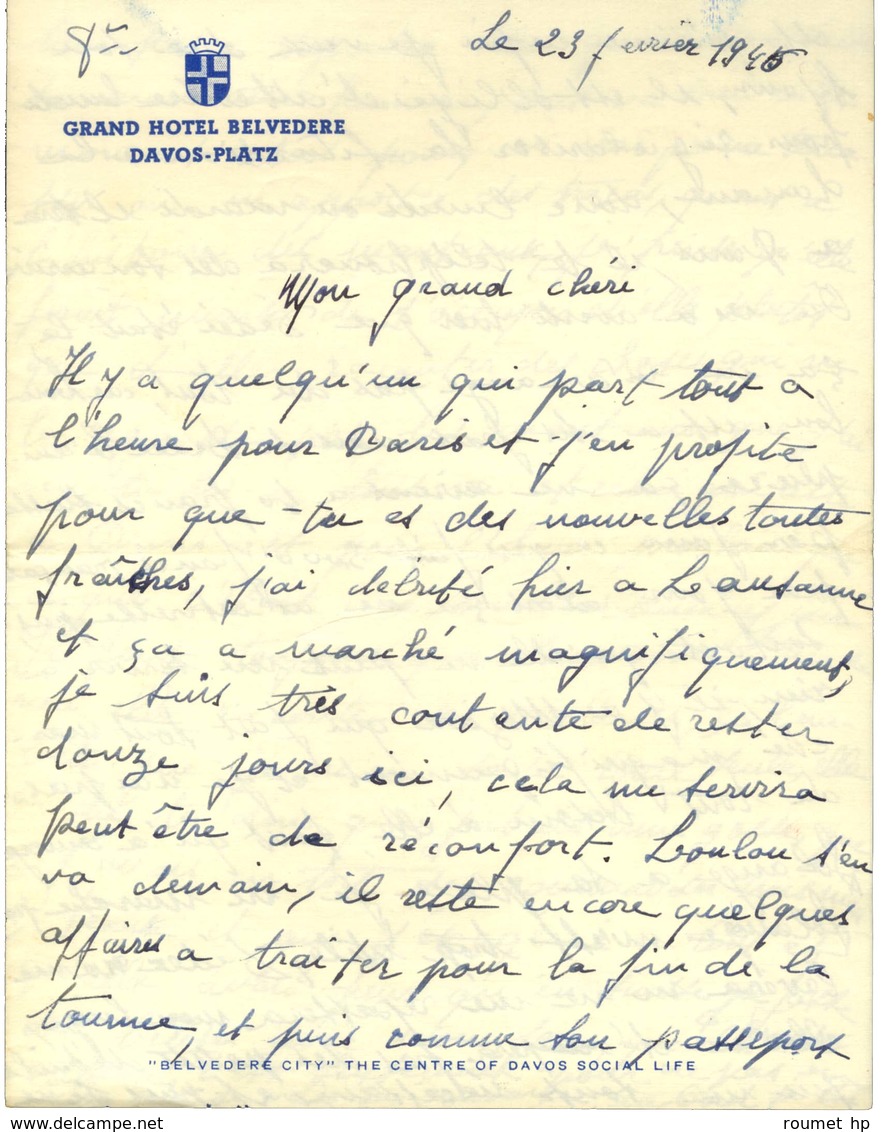 Le 23 fevrier 1945
GRAND HOTEL BELVEDERE
DAVOS-PLATZ
Mon grand chéri
Il y a quelqu'un qui part tout a
l'heure pour Paris et j'en profite
pour que tu es des nouvelles toutes
fraîches, j'ai débuté hier a Lausanne
et ça a marché magnifiquement,
je suis très contente de rester
douze jours ici, cela me servira
peut être de réconfort. Loulou s'en
va demain, il reste encore quelques
affaires a traiter pour la fin de la
tournee, et puis comme son passeport
"BELVEDERE CITY" THE CENTRE OF DAVOS SOCIAL LIFE
roumet hp